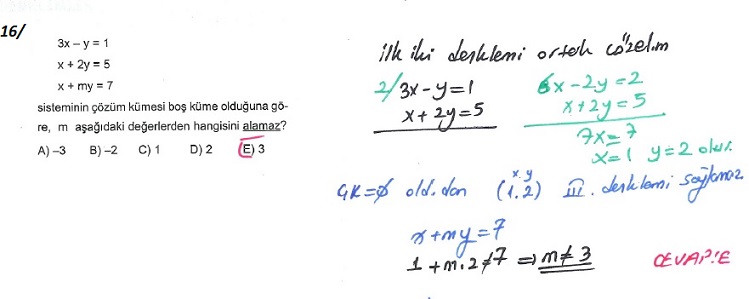 16/
3x – y = 1
x + 2y = 5
x + my = 7
sisteminin çözüm kümesi boş küme olduğuna gö-
re, m aşağıdaki değerlerden hangisini alamaz?
A) –3 B) –2 C) 1 D) 2 E) 3
ilk iki denklemi ortak çözelim
2/ 3x - y = 1
x + 2y = 5
6x - 2y = 2
x + 2y = 5
7x = 7
x = 1 y = 2 olur.
ÇK = ∅ old.dan (1,2) III. denklemi sağlamaz
x.y
x + my = 7
1 + m.2 ≠ 7 ⇒ m ≠ 3
CEVAP:E